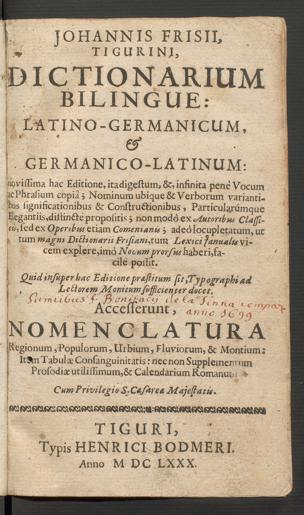 JOHANNIS FRISII,
TIGURINI,
DICTIONARIUM
BILINGUE:
LATINO-GERMANICUM,
&
GERMANICO-LATINUM:
novissima hac Editione, ita digestum, &, infinita penè Vocum
ac Phrasium copiâ; Nominum ubique & Verborum varianti-
bus significationibus & Constructionibus, Particularúmque
Elegantiis, distinctè propositis; non modò ex Autoribus Classi-
cis, sed ex Operibus etiam Comenianis; adeò locupletatum, ut
tum magni Dictionarii Frisiani, tum Lexici Janualis vi-
cem explere, imò Novum prorsus haberi, fa-
cilè possit.
Quid insuper hac Editione præstitum sit, Typographi ad
Lectorem Monitum sufficienter docet.
f. Bonifacij de la
anno 1699
Accesserunt,
NOMENCLATURA
Regionum, Populorum, Urbium, Fluviorum, & Montium:
Item Tabulæ Consanguinitatis: nec non Supplementum
Prosodiæ utilissimum, & Calendarium Romanum.
Cum Privilegio S. Cæsareæ Majestatis.
TIGURI,
Typis HENRICI BODMERI.
Anno M DC LXXX.